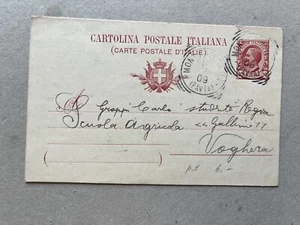 CARTOLINA POSTALE ITALIANA
(CARTE POSTALE D'ITALIE)
09
(PAVIA)
A Groppi Carlo studente Regia
Scuola Agricola "Gallini"
Voghera